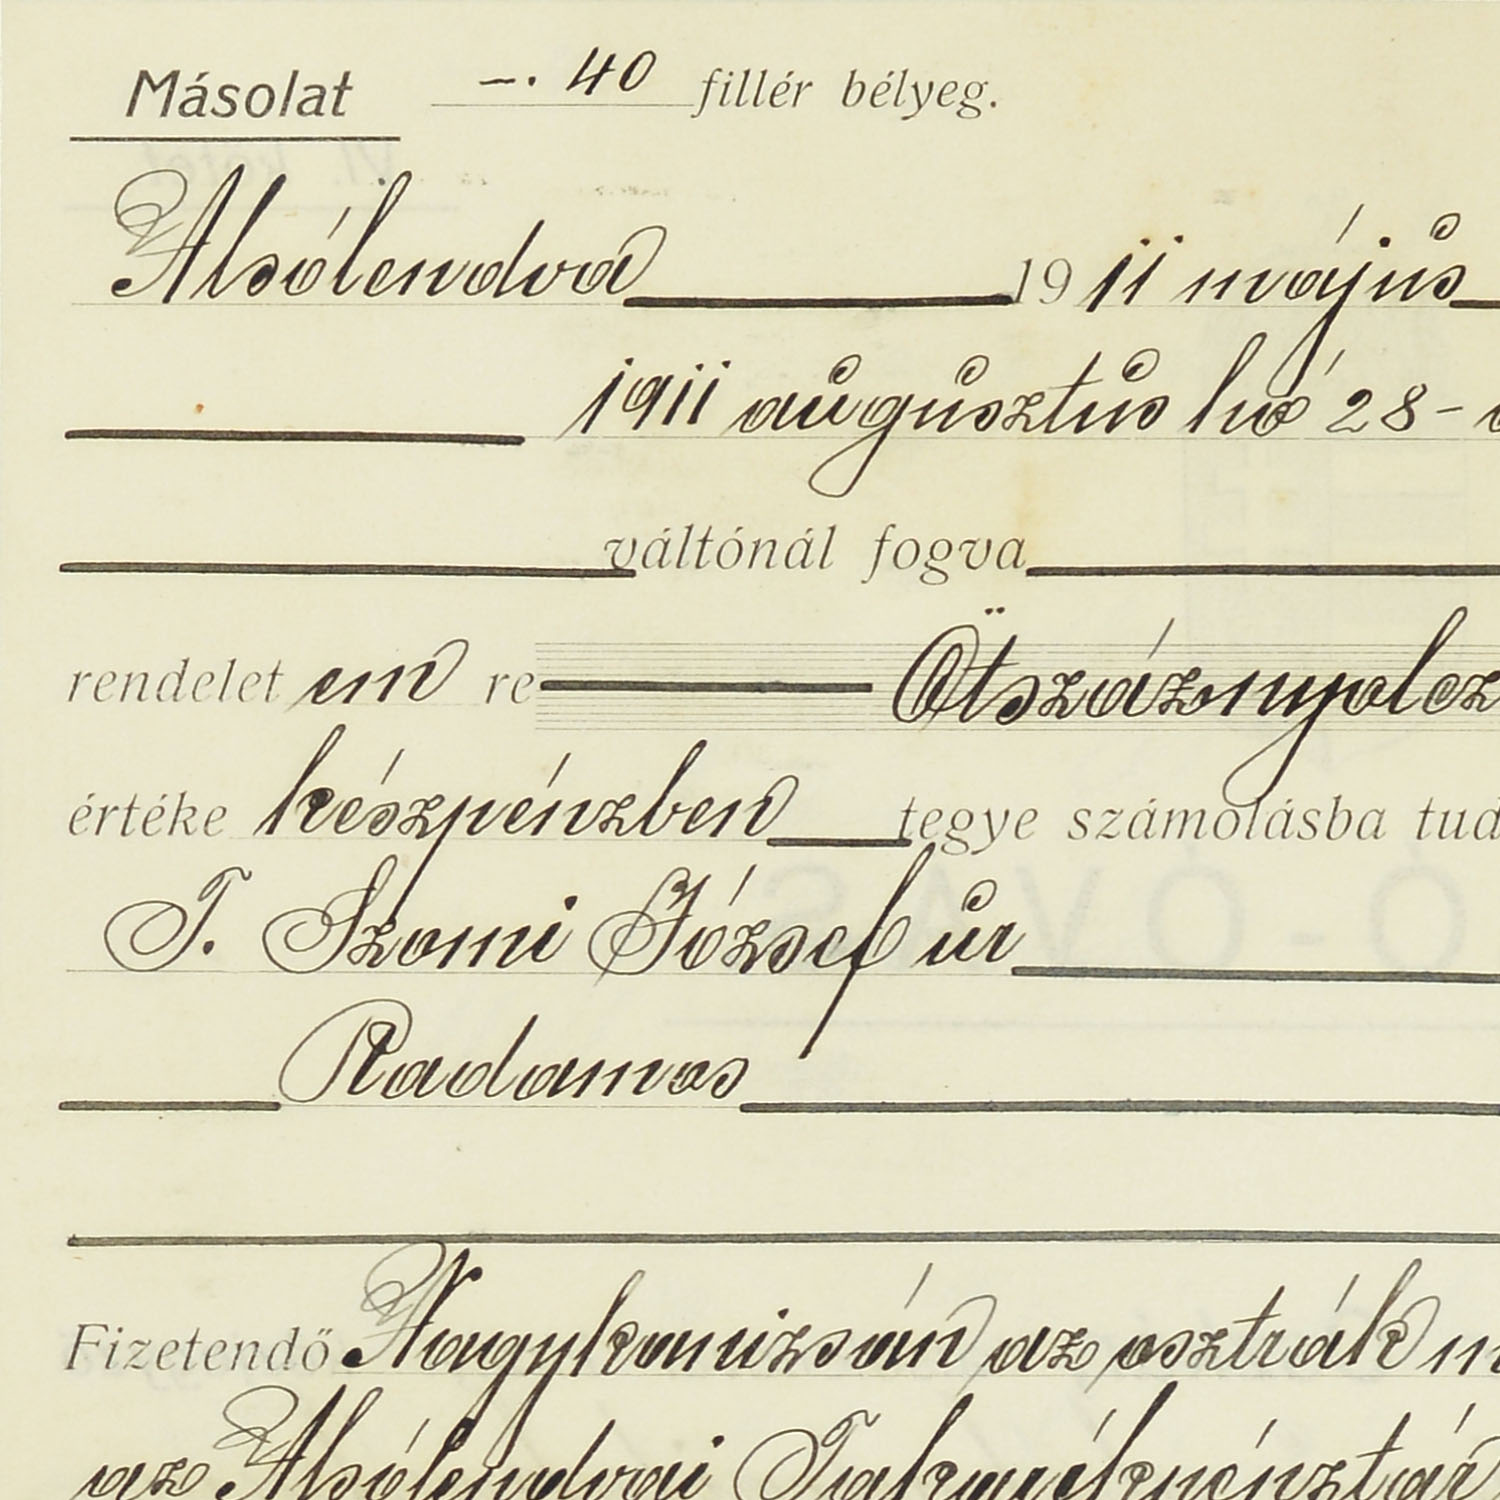 Másolat —. 40 fillér bélyeg.
Alsólendva 1911 május
1911 augusztus hó 28-
váltónál fogva
rendelet em re Ötszáznyolcz
értéke készpénzben tegye számolásba tud
T. Szomi József úr
Radamos
Fizetendő Nagykanizsán az osztrák m
az Alsólendvai Takarékpénztár